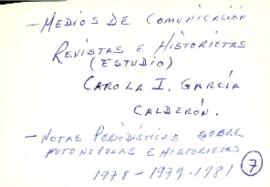 - MEDIOS DE COMUNICACIÓN
REVISTAS E HISTORIETAS
(ESTUDIO)
CAROLA I. GARCÍA
CALDERÓN.
- NOTAS PERIODISTICAS SOBRE
FOTONOVELAS E HISTORIETAS
1978 - 1979 - 1981
7